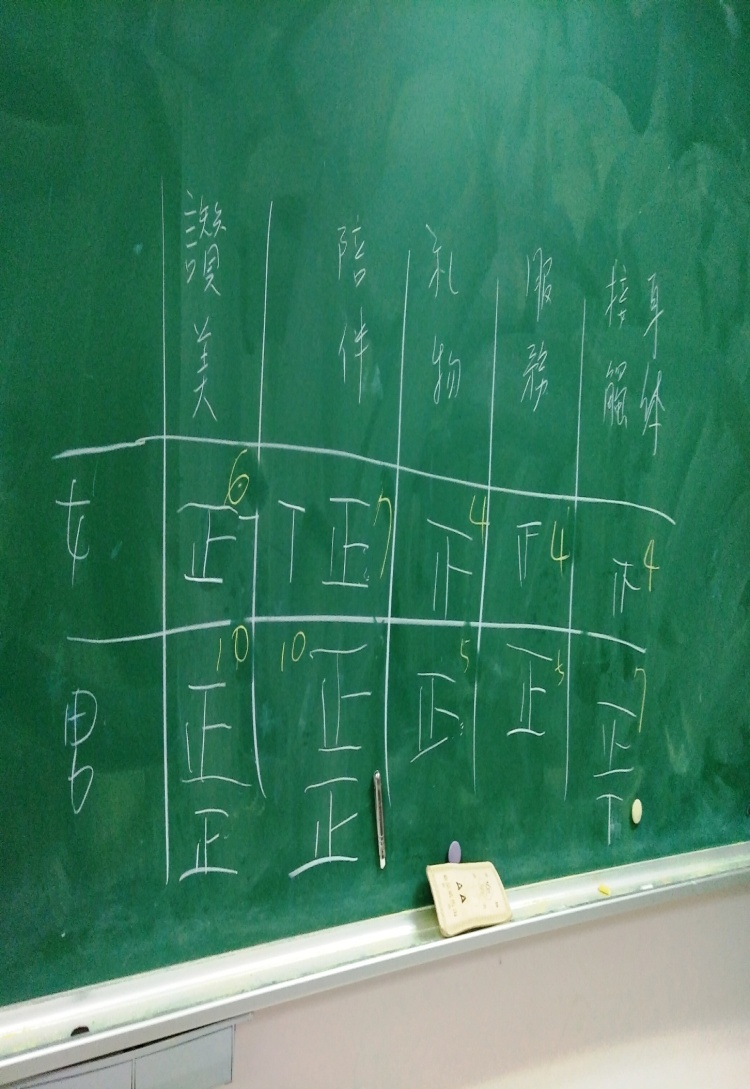 讚美 陪伴 礼物 服務 身体接觸
女 正一 6 丅正 7 正 4 正 4 正 4
男 正正 10 正正 10 正 5 正 5 正丅 7